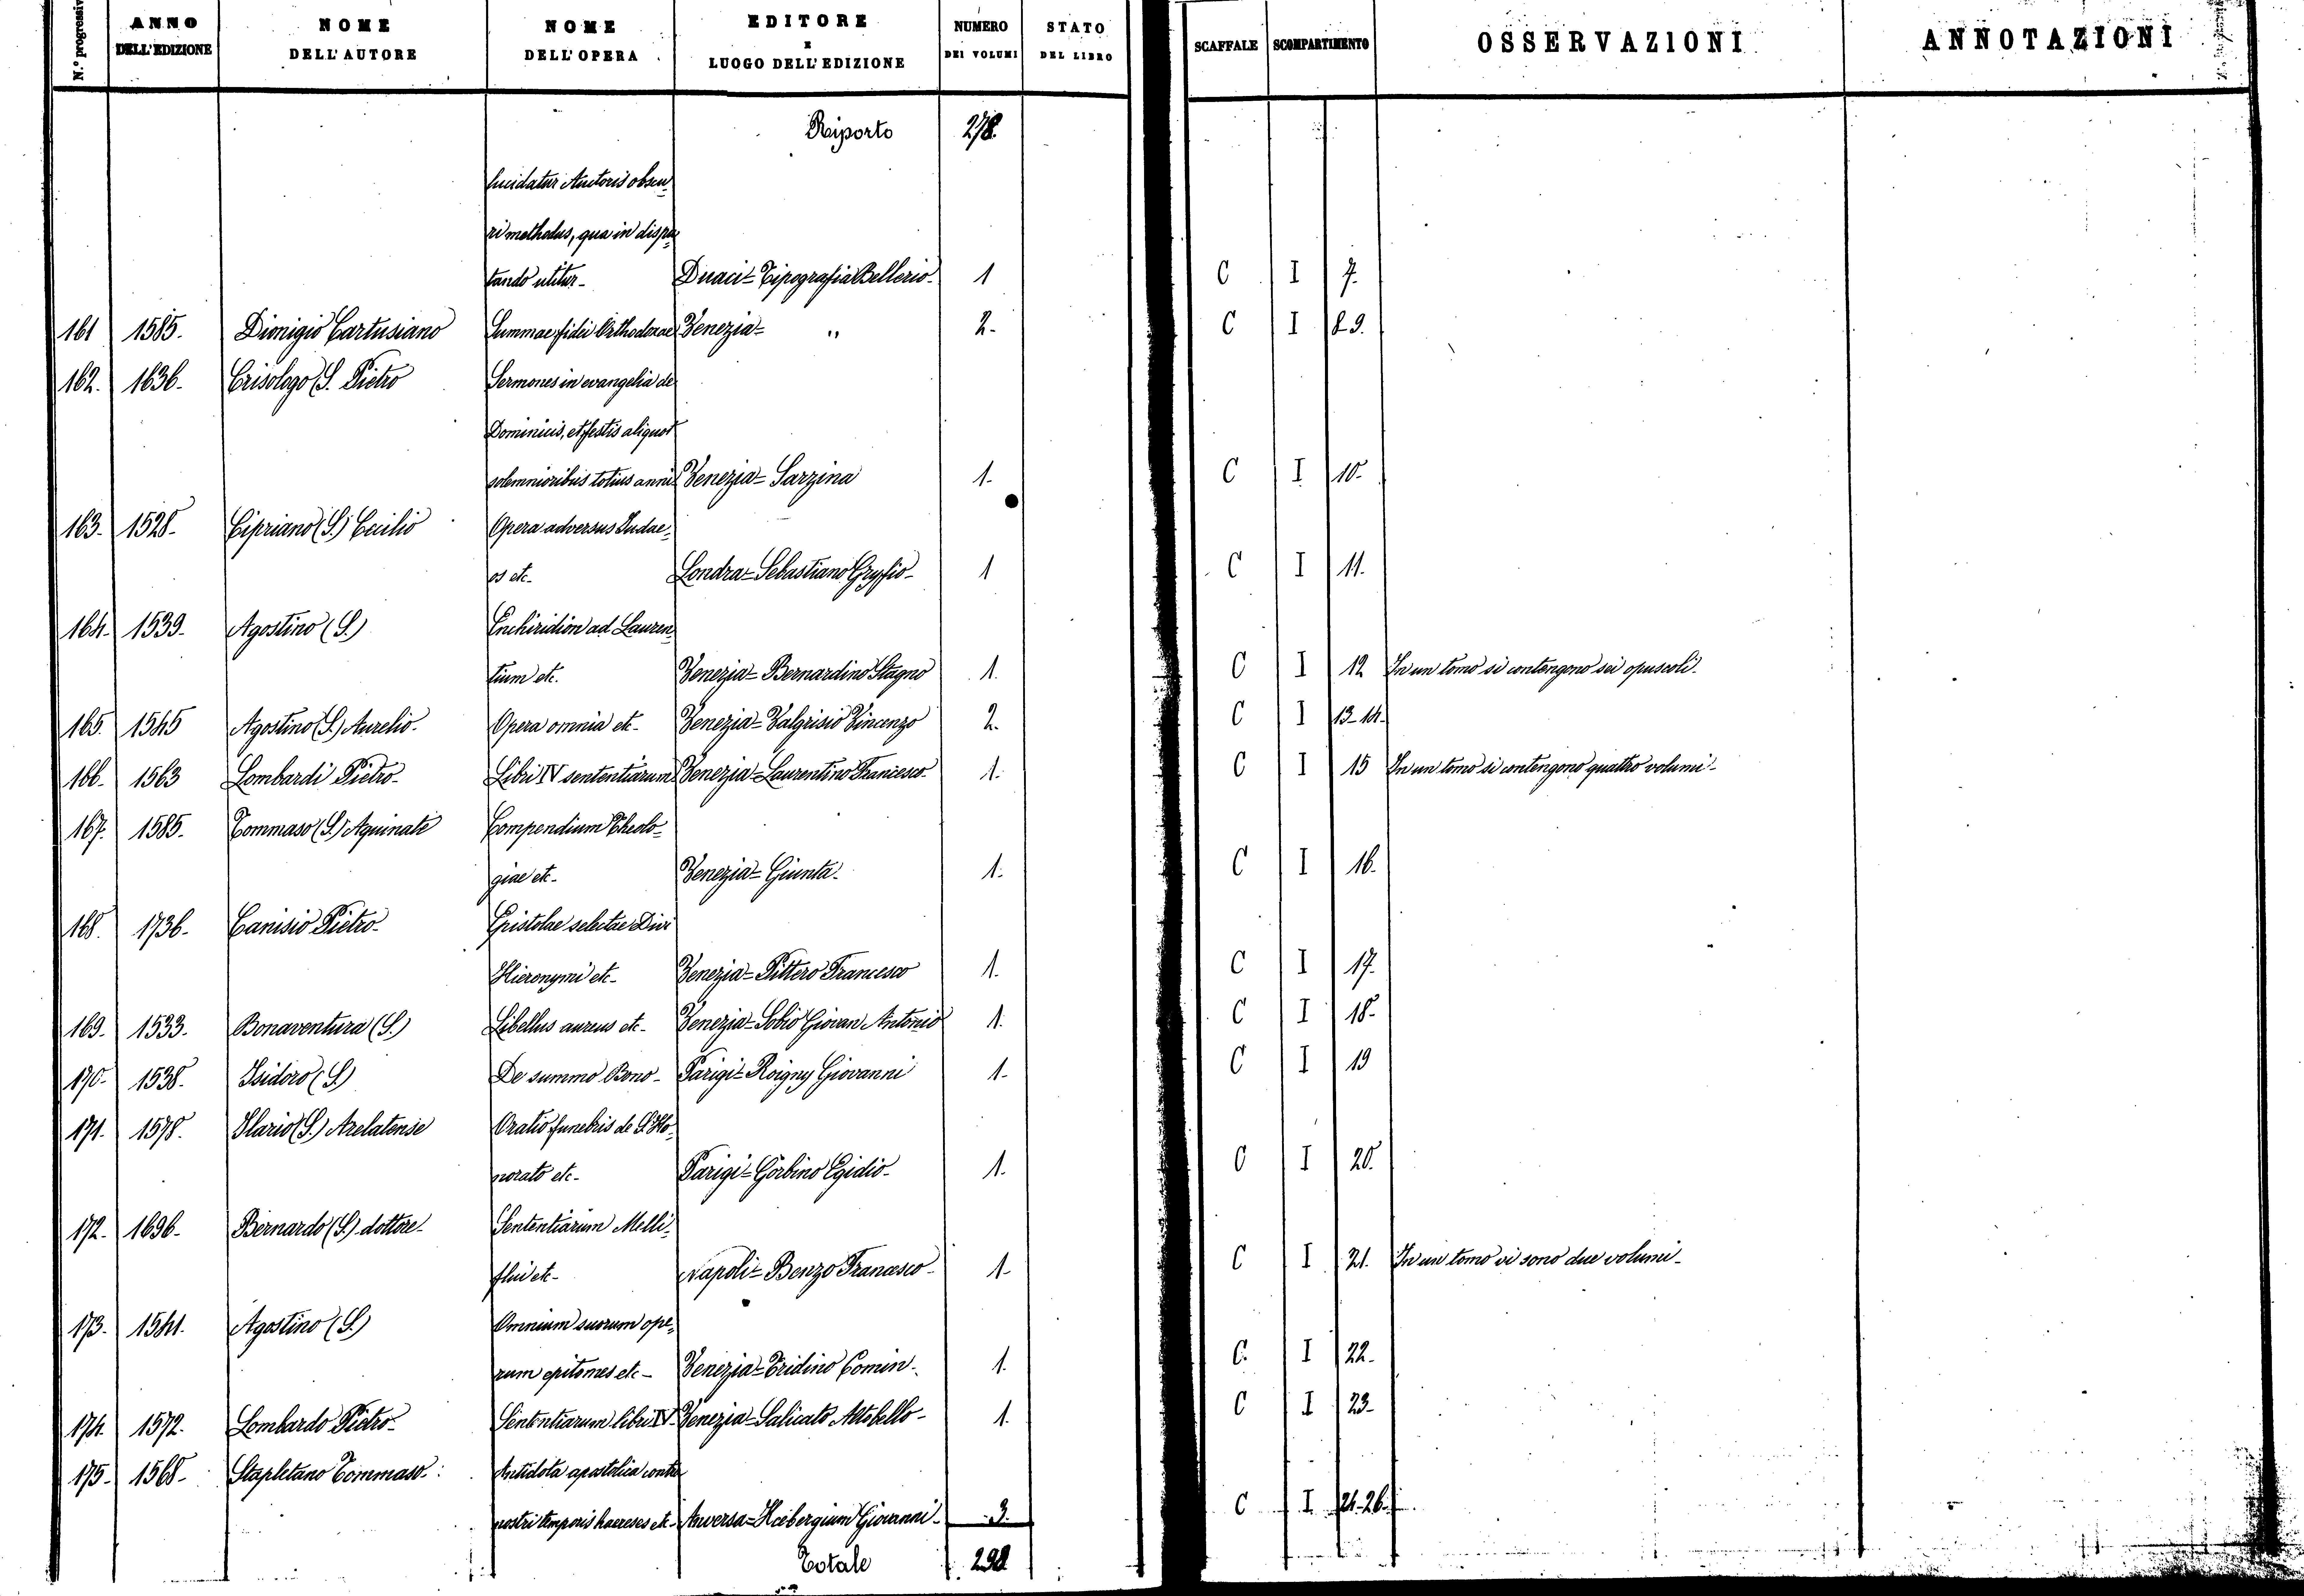 N.º progressivo ANNO DELL'EDIZIONE NOME DELL'AUTORE NOME DELL'OPERA EDITORE E LUOGO DELL'EDIZIONE NUMERO DEI VOLUMI STATO DEL LIBRO SCAFFALE SCOMPARTIMENTO OSSERVAZIONI ANNOTAZIONI
Riporto 278.
lucidatur Auctoris obscu-
ri methodus, qua in dispu-
tando utitur- Duaci= Tipografia Bellerio- 1 C I 7.
161 1585. Dionigio Cartusiano Summae fidei Orthodoxae Venezia= " 2. C I 8-9.
162. 1636. Crisologo S. Pietro Sermones in evangelia de
Dominicis, et festis aliquot
solemnioribus totius anni Venezia= Sarzina 1. C I 10.
163. 1528. Cipriano (S.) Cecilio Opera adversus Judae-
os etc. Londra= Sebastiano Gryfio- 1 C I 11.
164. 1539. Agostino (S.) Enchiridion ad Lauren-
tium etc. Venezia= Bernardino Stagno 1. C I 12 In un tomo si contengono sei opuscoli.
165. 1545 Agostino (S.) Aurelio. Opera omnia etc- Venezia= Valgrisio Vincenzo 2. C I 13-14.
166. 1563 Lombardi Pietro- Libri IV sententiarum Venezia= Laurentino Francesco- 1. C I 15 In un tomo si contengono quattro volumi-
167. 1585. Tommaso (S.) Aquinate Compendium Theolo-
giae etc- Venezia= Giunta. 1. C I 16.
168. 1736. Canisio Pietro- Epistolae selectae Divi
Hieronymi etc- Venezia= Pittero Francesco 1. C I 17.
169. 1533. Bonaventura (S.) Libellus aureus etc- Venezia= Sobio Giovan Antonio 1. C I 18.
170. 1538. Isidoro (S.) De summo Bono- Parigi= Roigny Giovanni 1. C I 19
171. 1578. Ilario (S.) Arelatense Oratio funebris de S. Ho-
norato etc- Parigi= Gorbino Egidio- 1. C I 20.
172. 1696. Bernardo (S.) dottore- Sententiarum Melli-
flui etc- Napoli= Benzo Francesco- 1. C I 21. In un tomo vi sono due volumi-
173. 1541. Agostino (S.) Omnium suorum ope-
rum epitomes etc- Venezia= Tridino Comin- 1. C. I 22.
174. 1572. Lombardo Pietro- Sententiarum libri IV- Venezia= Salicato Altobello- 1. C I 23.
175. 1568- Stapletano Tommaso- Antidota apostolica contra
nostri temporis haereses etc- Anversa= Giovanni- 3. C I 24-26.
Totale 298